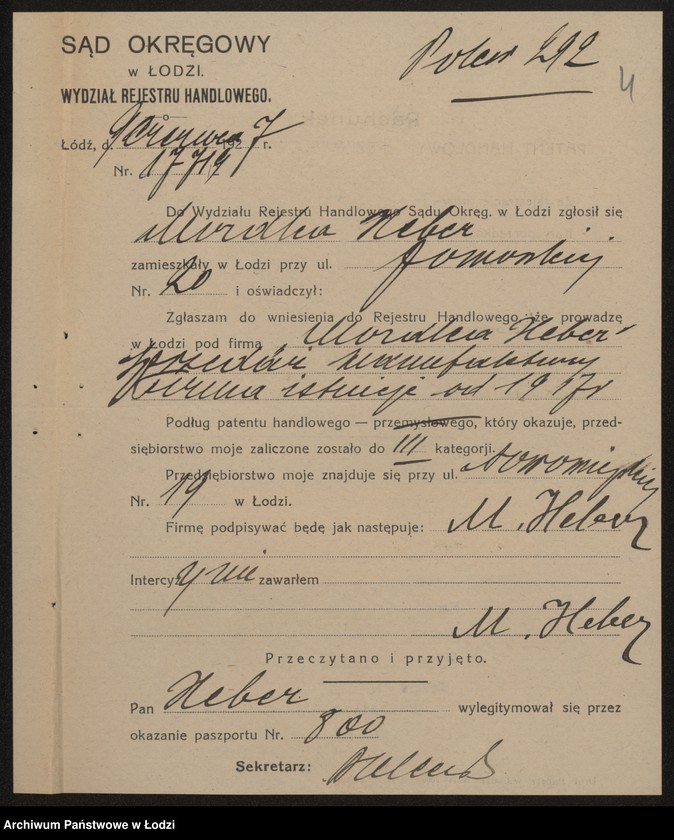 SĄD OKRĘGOWY
w ŁODZI.
WYDZIAŁ REJESTRU HANDLOWEGO.
292
4
Łódź, d. 9 Czerwca 1927 r.
Nr. 17719
Do Wydziału Rejestru Handlowego Sądu Okręg. w Łodzi zgłosił się
Mordka Heber
zamieszkały w Łodzi przy ul. Pomorskiej
Nr. 20 i oświadczył:
Zgłaszam do wniesienia do Rejestru Handlowego, że prowadzę
w Łodzi pod firmą „Mordka Heber"
sprzedaż manufaktury
Firma istnieje od 1917 r
Podług patentu handlowego — przemysłowego, który okazuje, przed-
siębiorstwo moje zaliczone zostało do III kategorji.
Przedsiębiorstwo moje znajduje się przy ul. Nowomiejskiej
Nr. 19 w Łodzi.
Firmę podpisywać będę jak następuje: M. Heber
Intercyzy nie zawarłem
M. Heber
Przeczytano i przyjęto.
Pan Heber wylegitymował się przez
okazanie paszportu Nr. 800
Sekretarz:
Archiwum Państwowe w Łodzi